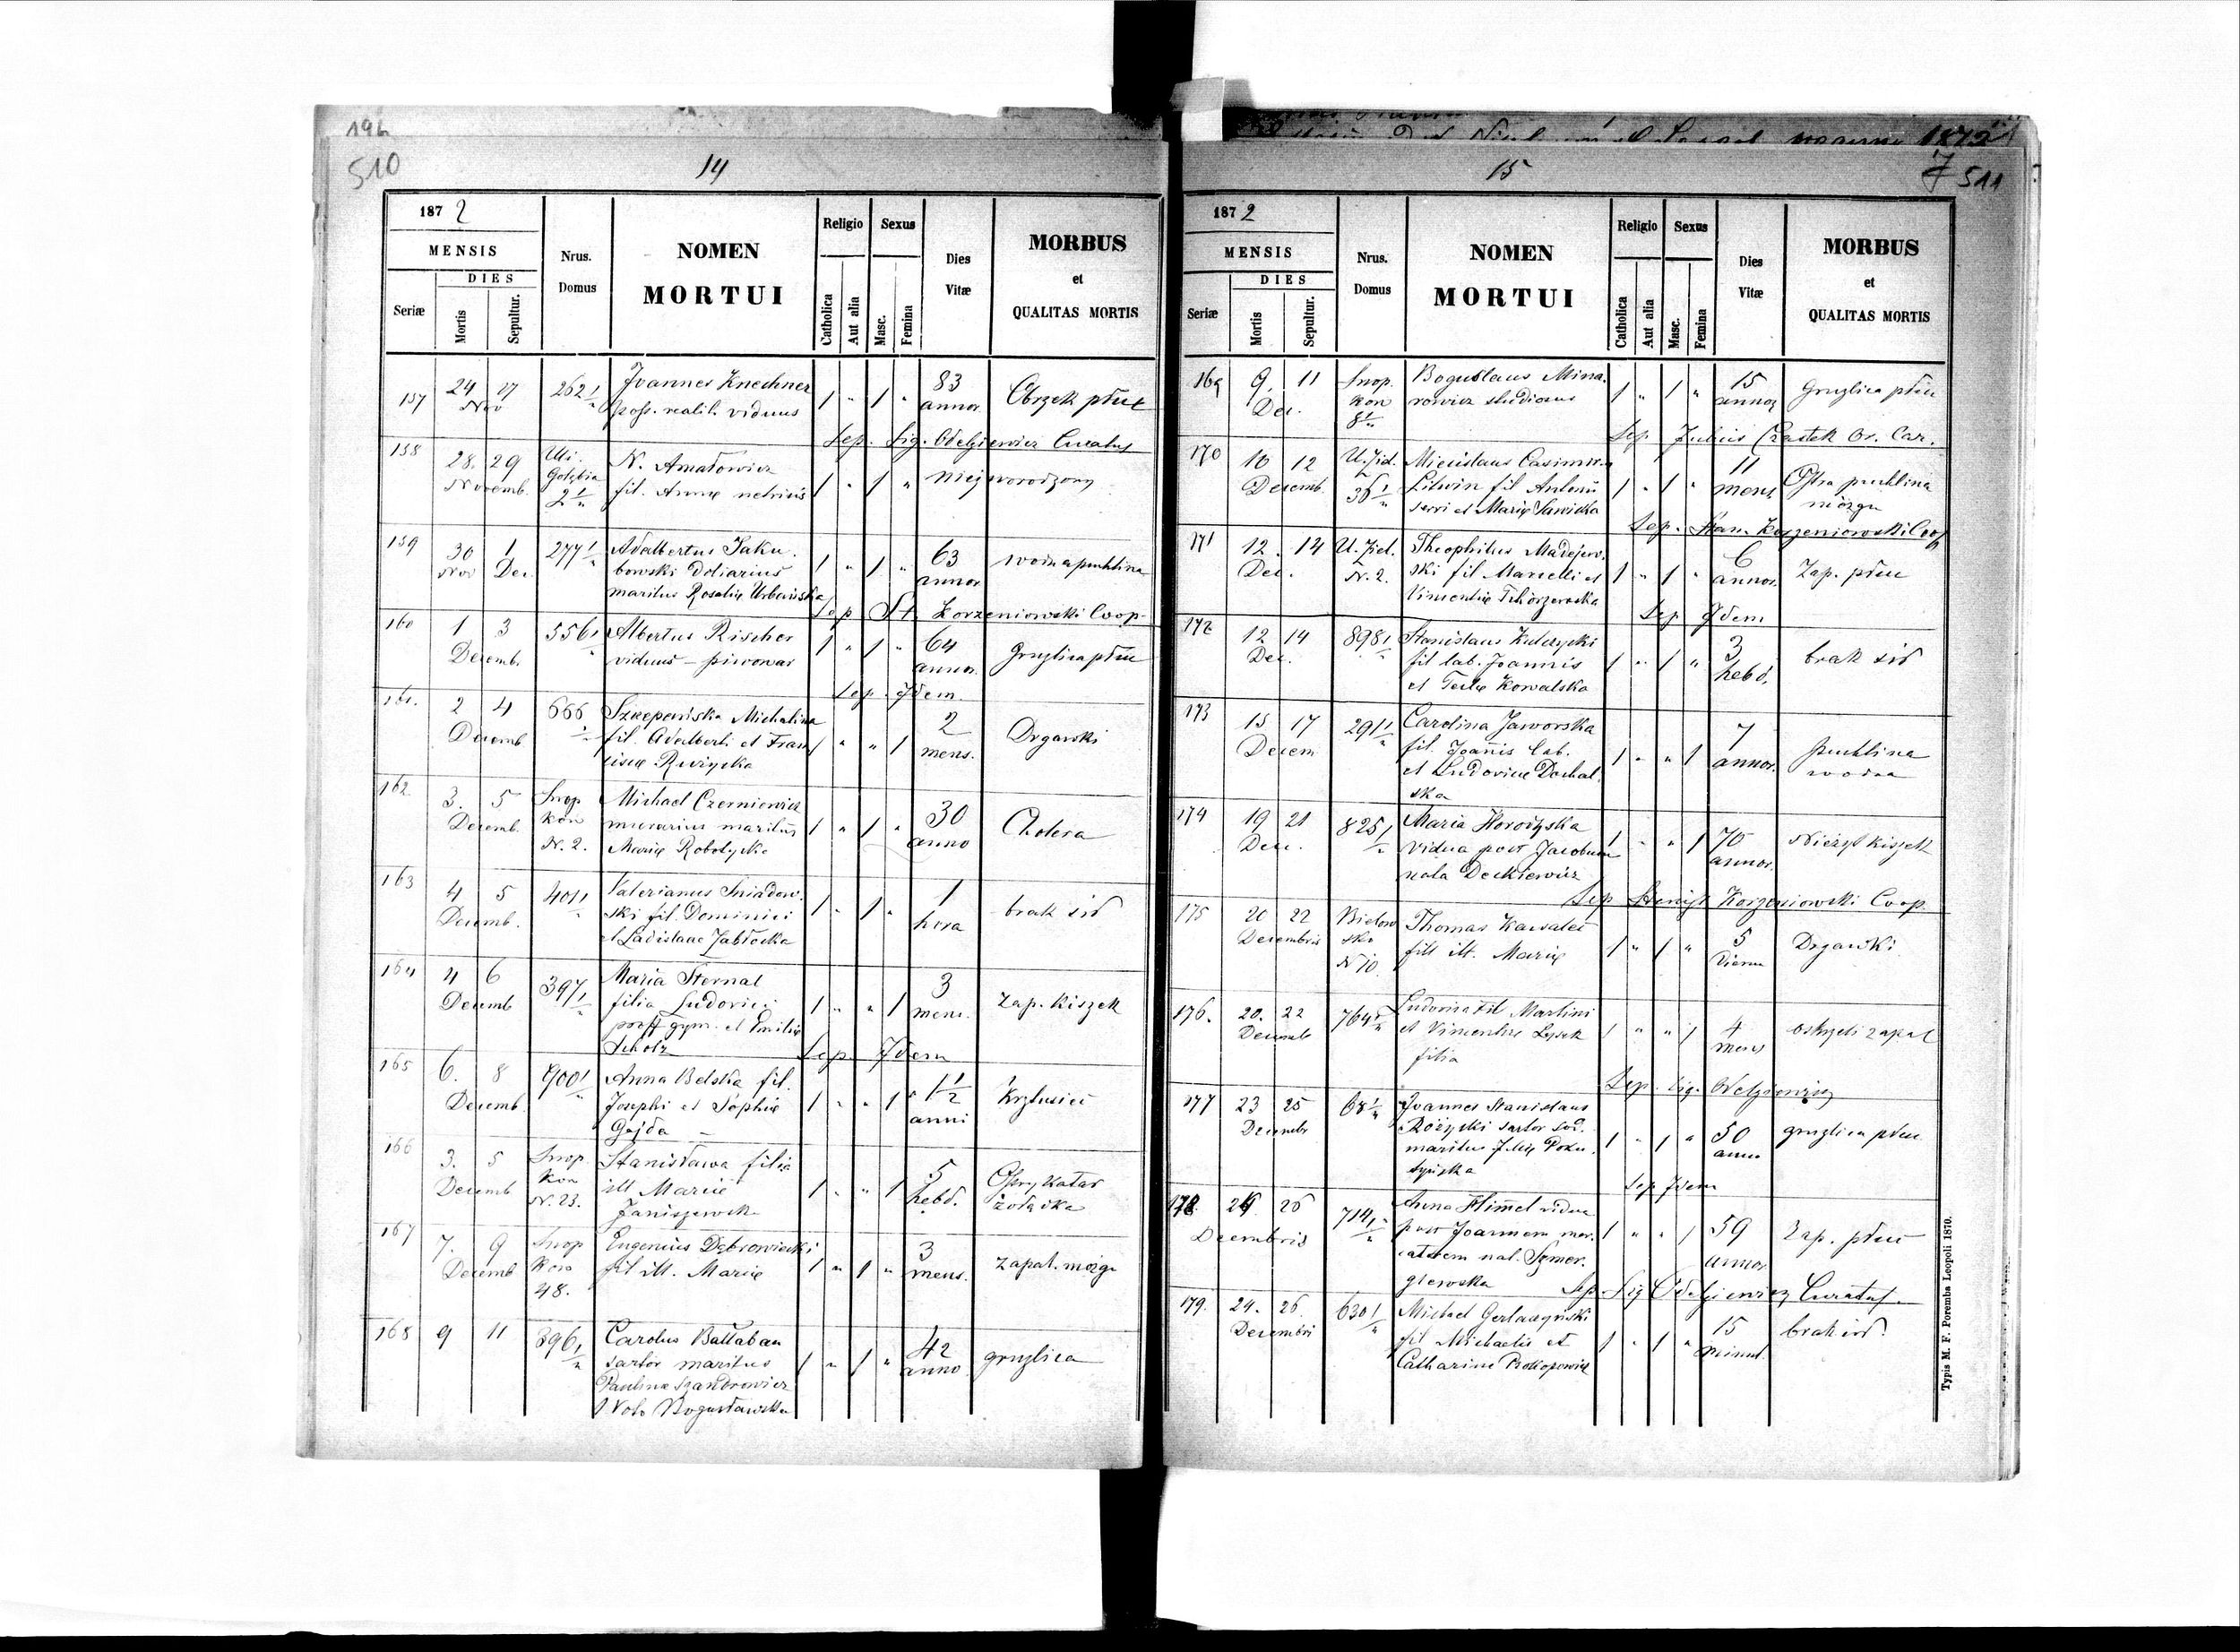 196
510
14
187 2
MENSIS
DIES
Seriæ
Mortis
Sepultur.
Nrus.
Domus
NOMEN
MORTUI
Religio
Catholica
Aut alia
Sexus
Masc.
Femina
Dies
Vitæ
MORBUS
et
QUALITAS MORTIS
157 24 27 262 1/4 Joannes Knechner 1 " 1 " 83 Obrzęk płuc
Nov poss. realit. viduus annor.
Sep. Sig. Odelgiewicz Curatus
158 28. 29 Uli. N. Amatowicz 1 " 1 " niez worodzony
Novemb. Gołębia fil. Annæ netricis
2 1/4
159 30 1 277 1/4 Adalbertus Jaku- 1 " 1 " 63 wodna puchlina
Nov Dec. bowski doliarius annor.
maritus Rosaliæ Urbańska
Sep St. Korzeniowski Coop.
160 1 3 556 1/4 Albertus Rischer 1 " 1 " 64 Gruzlica płuc
Decemb. viduus – piwowar annor.
Sep. Idem.
161. 2 4 666 Szczepańska Michalina 1 " " 1 2 Drgawki
Decemb fil. Adalberti et Fran- mens.
ciscæ Ruzycka
162. 3. 5 Snop Michael Czerniewicz 1 " 1 " 30 Cholera
Decemb. kow murarius maritus anno
N. 2. Mariæ Robotycka
163 4 5 401 1/4 Valerianus Sniadow- 1 " 1 " 1 brak sił
Decemb. ski fil. Dominici hora
et Ladislaae Jabłocka
164 4 6 397 1/4 Maria Sternal 1 " " 1 3 zap. kiszek
Decemb filia Ludovici mens.
proff gym. et Emiliæ
Scholz
Sep Idem
165 6. 8 900 1/4 Anna Belska fil. 1 " " 1 1 1/2 Krztusiec
Decemb. Josephi et Sophiæ anni
Gajda –
166 3. 5 Snop Stanisława filia 1 " " 1 5
Decemb kow ill Mariæ hebd. żołądka
N. 23. Janiszewsk
167 7. 9 Snop Eugenius Dąbrowiecki 1 " 1 " 3 zapal. mózgu
Decemb kow fil ill. Mariæ mens.
48.
168 9 11 396 1/4 Carolus Bałłaban 1 " 1 " 42 gruzlica
sartor maritus anno
Paulinæ Szandrowicz
1 Voto Bogusławska
1872
15
7 511
187 2
MENSIS
DIES
Seriæ
Mortis
Sepultur.
Nrus.
Domus
NOMEN
MORTUI
Religio
Catholica
Aut alia
Sexus
Masc.
Femina
Dies
Vitæ
MORBUS
et
QUALITAS MORTIS
169 9. 11 Snop. Boguslaus Mina- 1 " 1 " 15 gruzlica płuc
Dec. kow rowicz studiosus annor
8 1/4
Sep Julius Czastek Or. Car.
170 10 12 U. Ziel. Miecislaus Casimir. 1 " 1 " 11 Ostra puchlina
Decemb. 36 1/4 Litwin fil Antonii mens mózgu
servi et Mariæ Sawicka
Sep. Stan. Korzeniowski Coop
171 12. 14 U. Ziel. Theophilus Madejew- 1 " 1 " 6 Zap. płuc
Dec. N. 2. ski fil Marcelli et annor.
Vincentiæ Tchórzewska
Sep Idem
172 12 14 898 1/4 Stanislaus Kulczycki 1 " 1 " 3 brak sił
Dec. fil lab. Joannis hebd.
et Teclæ Kowalska
173 15 17 291 1/4 Carolina Jaworska 1 " " 1 7 puchlina
Decem fil. Joañis lab. annor. wodna
et Ludovicæ Dochal-
ska
174 19 21 825 1/4 Maria Horodyska 1 " " 1 70 Nieżyt kiszek
Dec. vidua post Jacobum annor.
nata Deckiewicz
Sep Stanisł Korzeniowski Coop.
175 20 22 Bielow Thomas Kawalec 1 " 1 " 5 Drgawki
Decembris ska fill ill. Mariæ dierum
N 10.
176. 20. 22 764 1/4 Ludovica fil Martini 1 " " 1 4 oskrzeli zapal
Decemb et Vincentiæ Lysek mens
filia
Sep. Sig. Odelgiewicz
177 23 25 68 1/4 Joannes Stanislaus 1 " 1 " 50 gruzlica płuc
Decembr Różyski sartor sod. anno
maritus Juliæ Poku-
tyńska
Sep Idem
178. 24 26 714 1/4 Anna Himel vidua 1 " " 1 59 Zap. płuc
Decembris post Joannem mer- annor
catorem nat. Szmer-
glewska
Sep Sig Odelgiewicz Curatus.
179. 24. 26. 630 1/4 Michael Gerlaczyński 1 " 1 " 15 brak sił.
Decembri fil Michaelis et minut.
Catharinæ Prokopowicz
Typis M. F. Poremba Leopoli 1870.